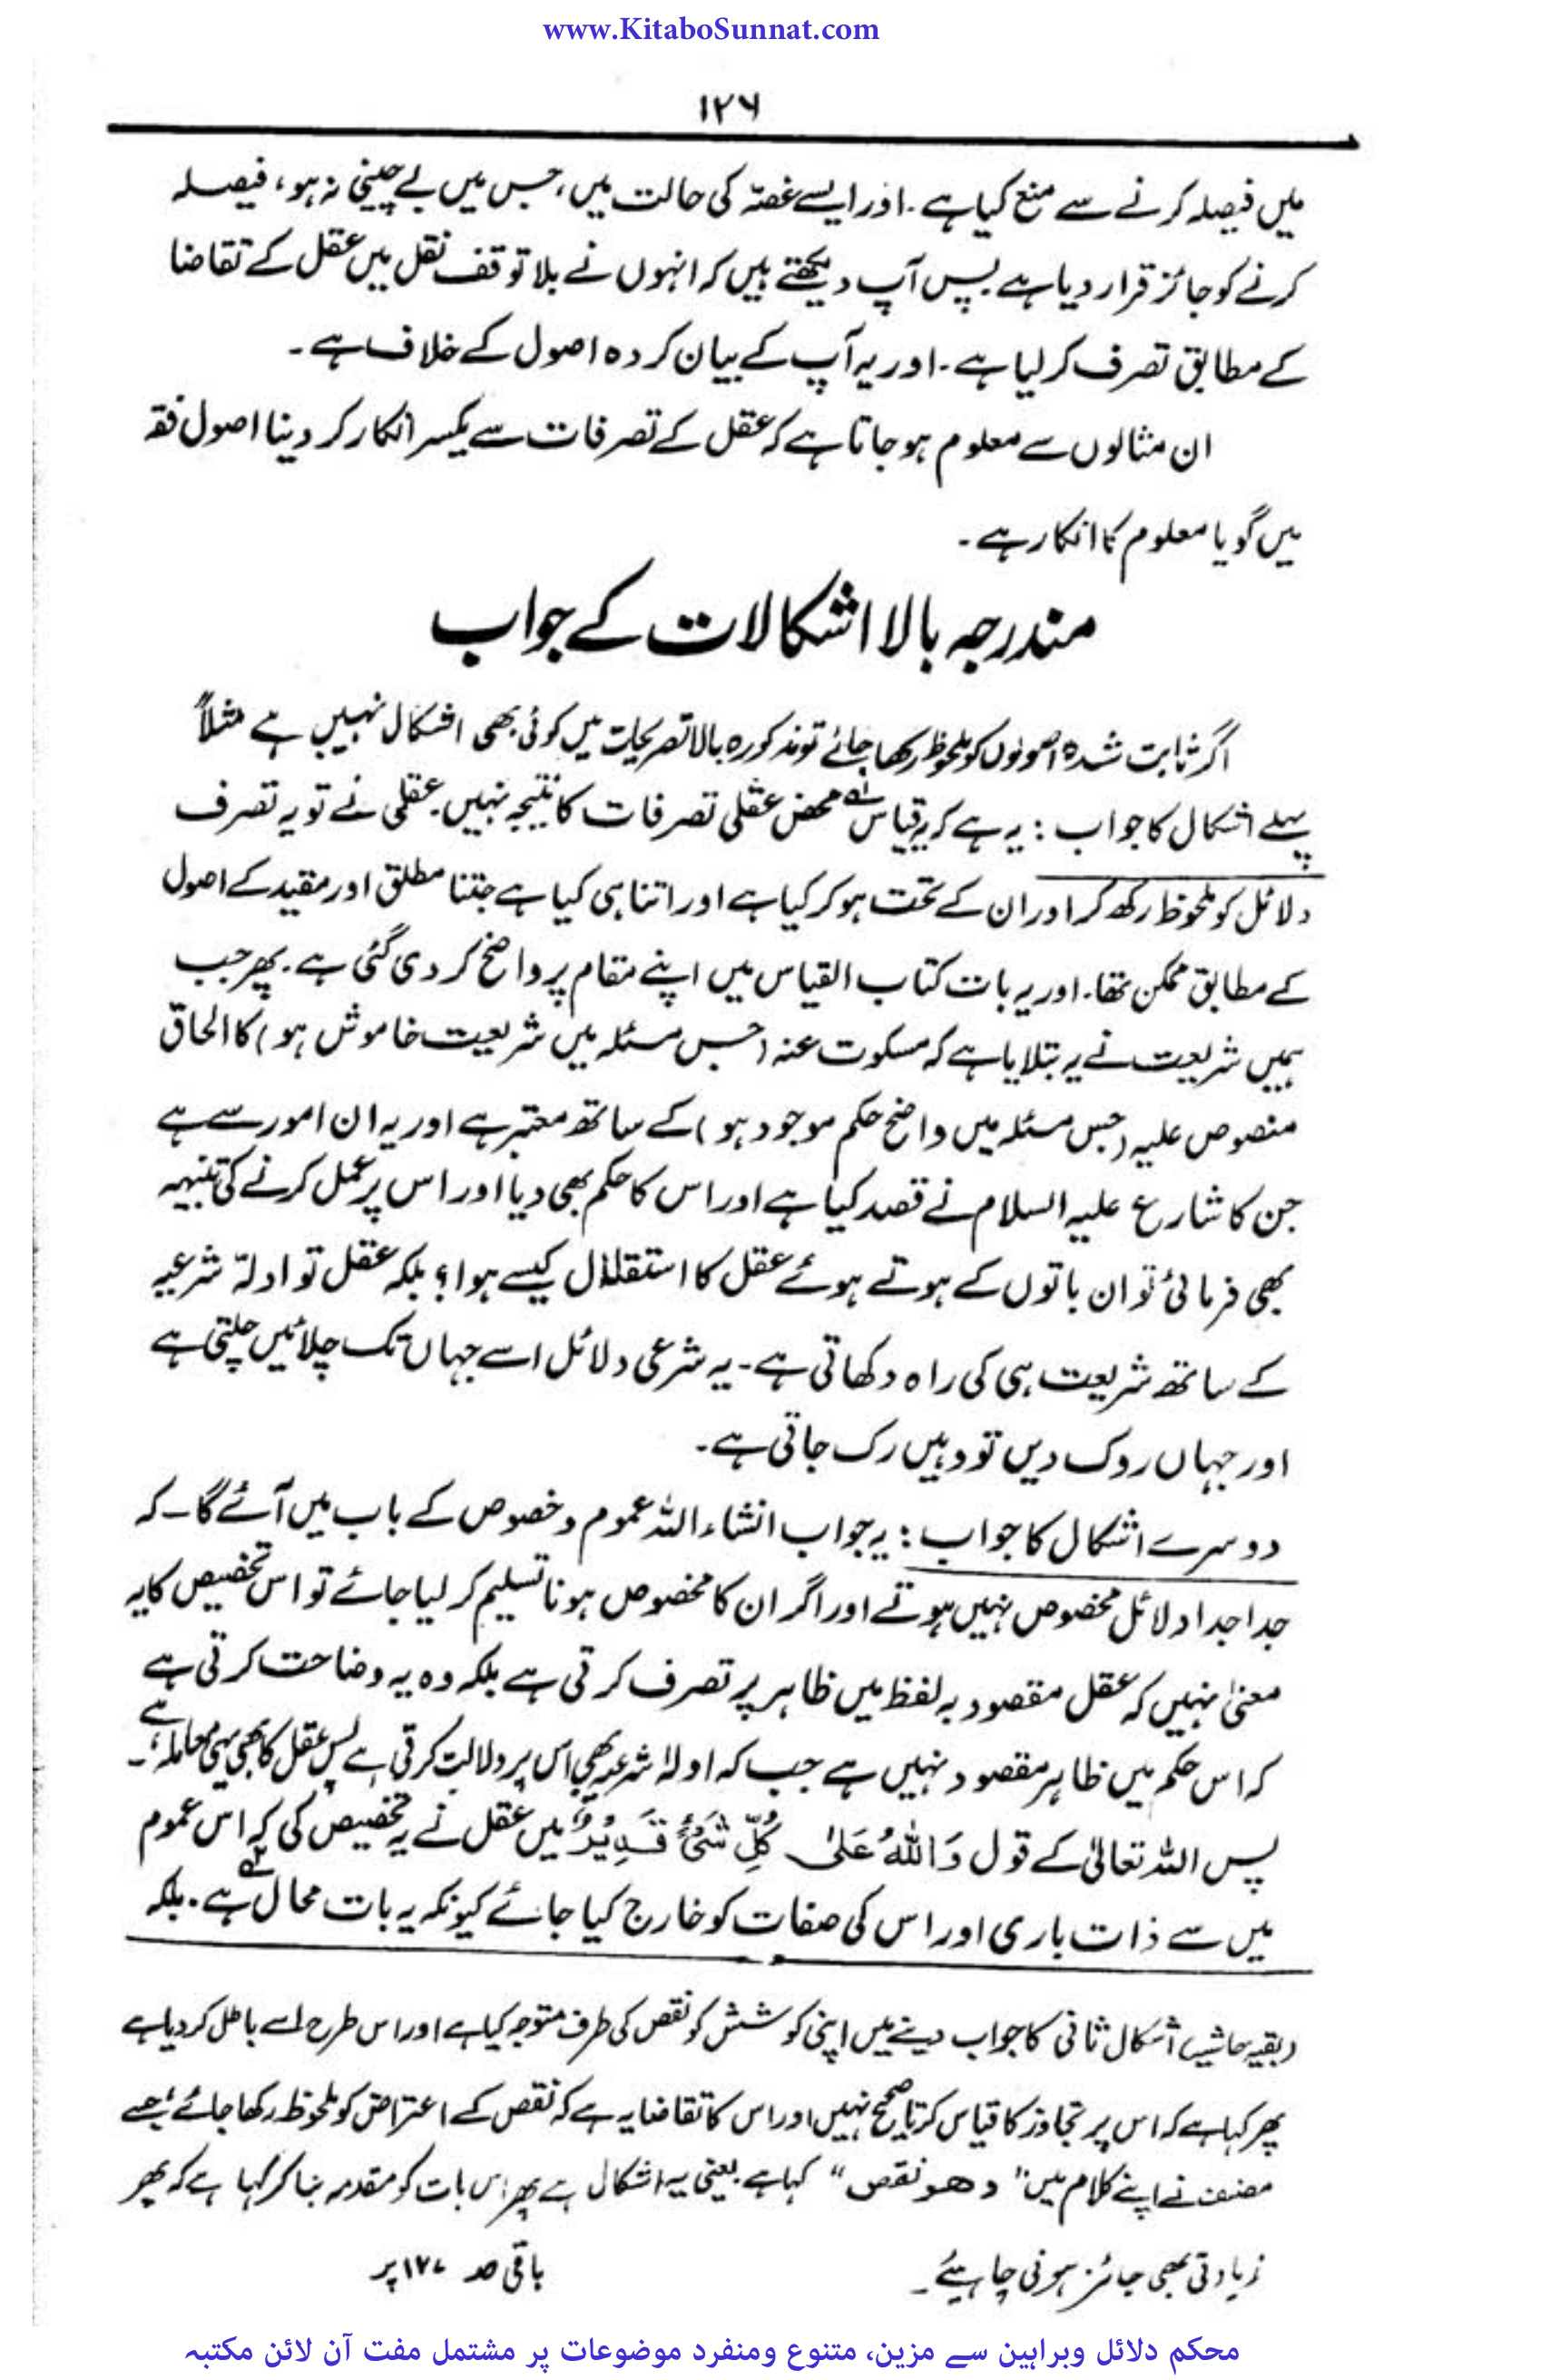 www.KitaboSunnat.com
۱۲۶
میں فیصلہ کرنے سے منع کیا ہے۔ اور ایسے غصّہ کی حالت میں، جس میں بے چینی نہ ہو، فیصلہ
کرنے کو جائز قرار دیا ہے پس آپ دیکھتے ہیں کہ انہوں نے بلا توقف نقل میں عقل کے تقاضا
کے مطابق تصرف کر لیا ہے۔ اور یہ آپ کے بیان کردہ اصول کے خلاف ہے۔
ان مثالوں سے معلوم ہو جاتا ہے کہ عقل کے تصرفات سے یکسر انکار کر دینا اصول فقہ
میں گویا معلوم کا انکار ہے۔
مندرجہ بالا اشکالات کے جواب
اگر ثابت شدہ اصولوں کو ملحوظ رکھا جائے تو مذکورہ بالا تصریحات میں کوئی بھی اشکال نہیں ہے مثلاً
پہلے اشکال کا جواب : یہ ہے کہ یہ قیاس لہ محض عقلی تصرفات کا نتیجہ نہیں۔ عقلی نے تو یہ تصرف
دلائل کو ملحوظ رکھ کر اور ان کے تحت ہو کر کیا ہے اور اتنا ہی کیا ہے جتنا مطلق اور مقید کے اصول
کے مطابق ممکن تھا۔ اور یہ بات کتاب القیاس میں اپنے مقام پر واضح کر دی گئی ہے۔ پھر جب
ہمیں شریعت نے یہ بتلایا ہے کہ مسکوت عنہ (جس مسئلہ میں شریعت خاموش ہو) کا الحاق
منصوص علیہ (جس مسئلہ میں واضح حکم موجود ہو) کے ساتھ معتبر ہے اور یہ ان امور سے ہے
جن کا شارع علیہ السلام نے قصد کیا ہے اور اس کا حکم بھی دیا اور اس پر عمل کرنے کی تنبیہہ
بھی فرمائی تو ان باتوں کے ہوتے ہوئے عقل کا استقلال کیسے ہوا؟ بلکہ عقل تو ادلۃ شرعیہ
کے ساتھ شریعت ہی کی راہ دکھاتی ہے۔ یہ شرعی دلائل اسے جہاں تک چلائیں چلتی ہے
اور جہاں روک دیں تو وہیں رک جاتی ہے۔
دوسرے اشکال کا جواب : یہ جواب انشاء اللہ عموم و خصوص کے باب میں آئے گا۔ کہ
جدا جدا دلائل مخصوص نہیں ہوتے اور اگر ان کا مخصوص ہونا تسلیم کر لیا جائے تو اس تخصیص کا یہ
معنیٰ نہیں کہ عقل مقصود بہ لفظ میں ظاہر پر تصرف کرتی ہے بلکہ وہ یہ وضاحت کرتی ہے
کہ اس حکم میں ظاہر مقصود نہیں ہے جب کہ ادلۂ شرعیہ بھی اس پر دلالت کرتی ہے پس عقل کا بھی یہی معاملہ ہے۔
پس اللہ تعالیٰ کے قول وَاللّٰهُ عَلٰی كُلِّ شَیْءٍ قَدِیْرٌ میں عقل نے یہ تخصیص کی کہ اس عموم
میں سے ذات باری اور اس کی صفات کو خارج کیا جائے کیونکہ یہ بات محال ہے۔ بلکہ
(بقیہ حاشیہ) اشکال ثانی کا جواب دینے میں اپنی کوشش کو نقص کی طرف متوجہ کیا ہے اور اس طرح اسے باطل کر دیا ہے
پھر کہا ہے کہ اس پر تجاوز کا قیاس کرنا صحیح نہیں اور اس کا تقاضا یہ ہے کہ نقص کے اعتراض کو ملحوظ رکھا جائے جسے
مصنف نے اپنے کلام میں "وھو نقص" کہا ہے یعنی یہ اشکال ہے پھر اس بات کو مقدمہ بنا کر کہا ہے کہ پھر
زیادتی بھی جائز ہونی چاہیئے۔
باقی صد ۱۲۷ پر
محکم دلائل وبراہین سے مزین، متنوع ومنفرد موضوعات پر مشتمل مفت آن لائن مکتبہ